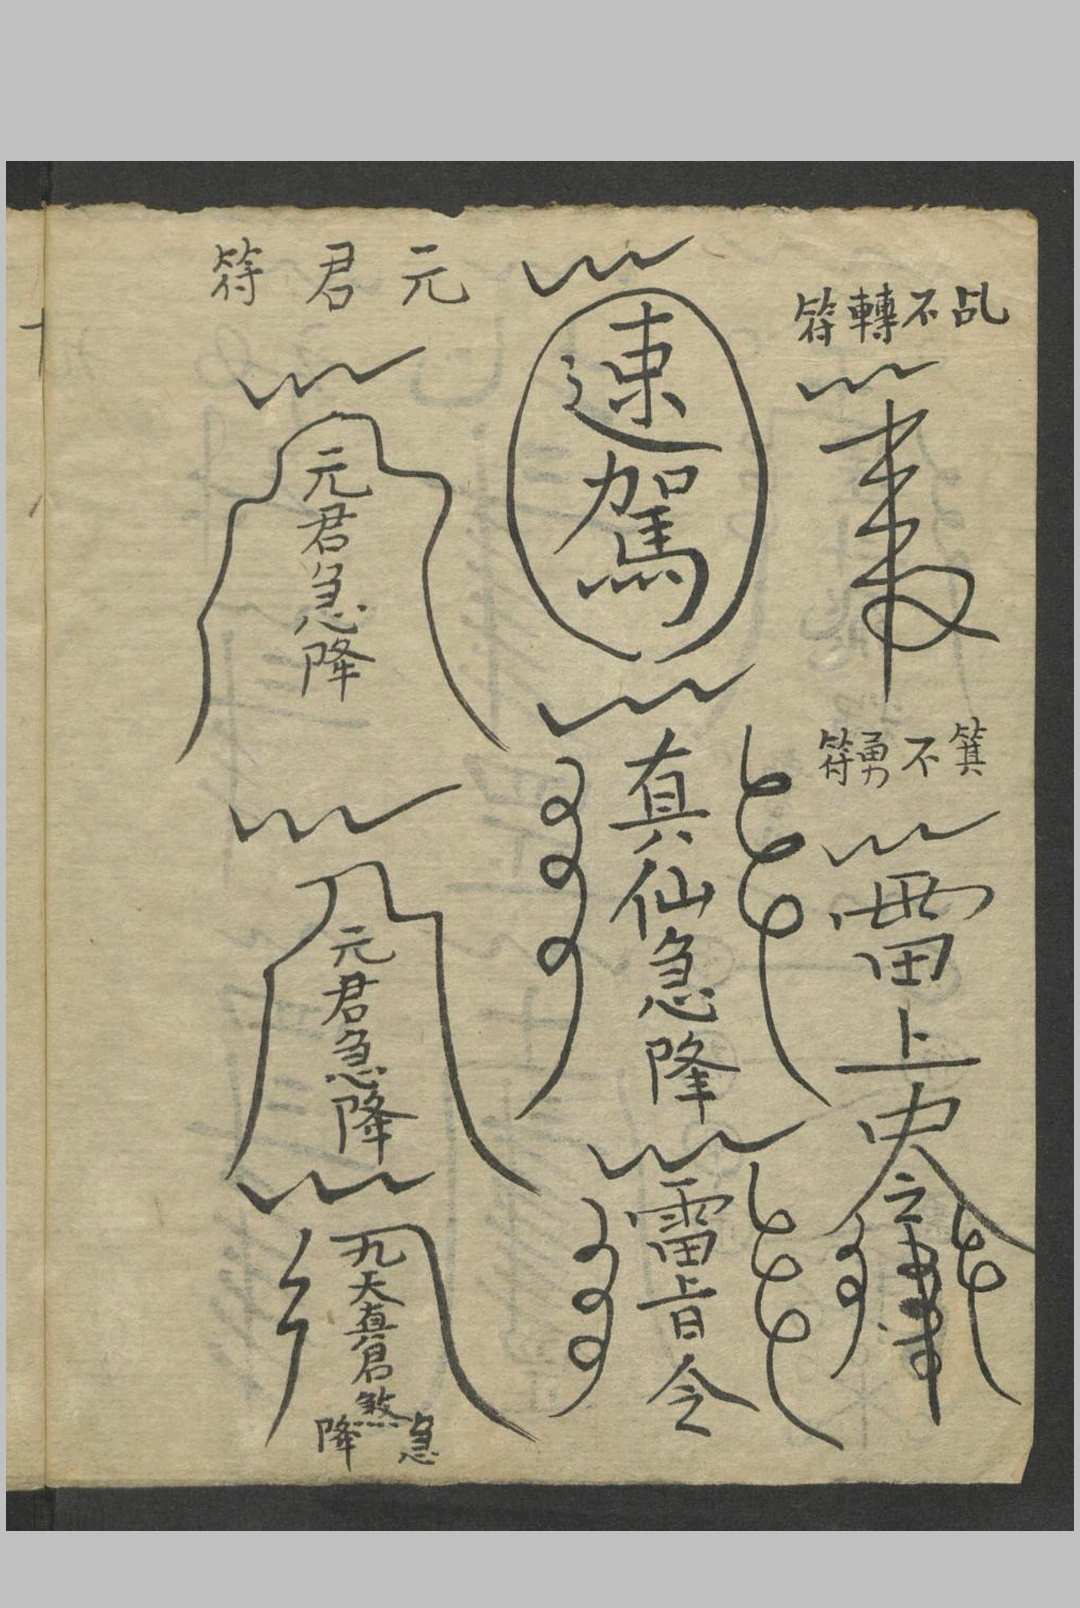 乩不轉符
箕不勇符
雷上
速駕
真仙急降
雷旨令
元君符
元君急降
元君急降
九天真君煞急降